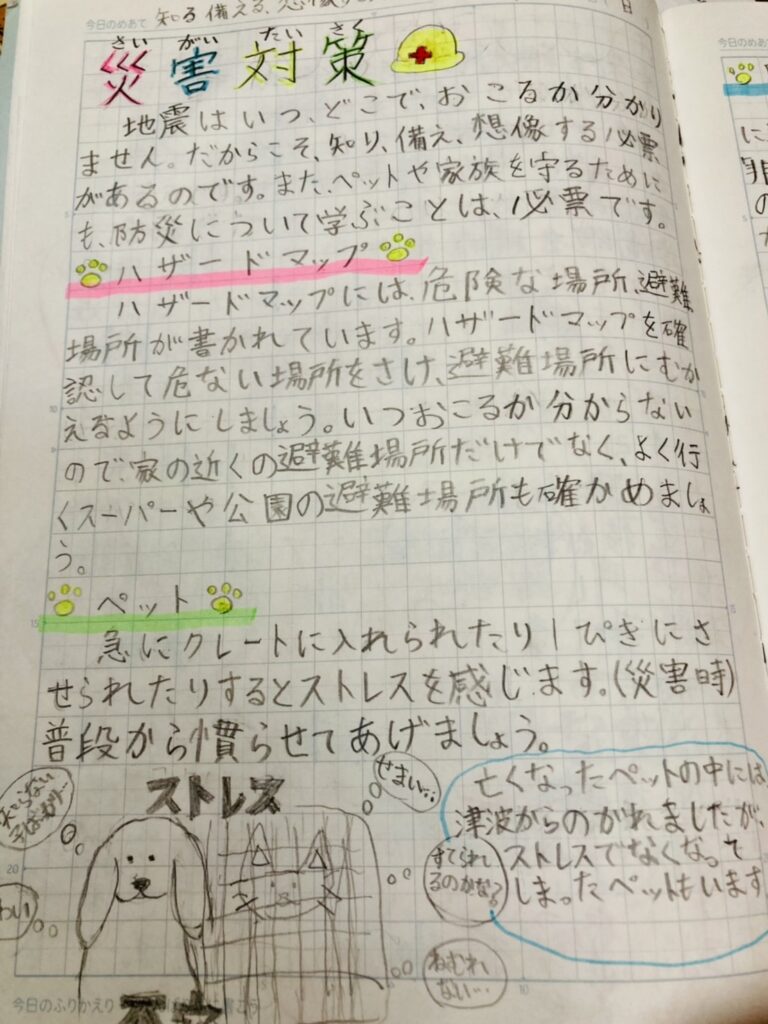 今日のめあて 知る 備える、想像す
日
さい がい たい さく
災害対策
地震はいつ、どこで、おこるか分かり
ません。だからこそ、知り、備え、想像する必票
があるのです。また、ペットや家族を守るために
も、防災について学ぶことは、必票です。
ハザードマップ
ハザードマップには、危険な場所、避難
場所が書かれています。ハザードマップを確
認して危ない場所をさけ、避難場所にむか
えるようにしましょう。いつおこるか分からない
ので、家の近くの避難場所だけでなく、よく行
くスーパーや公園の避難場所も確かめましょ
う。
ペット
急にクレートに入れられたり1ぴきにさ
せられたりするとストレスを感じます。(災害時)
普段から慣らせてあげましょう。
ストレス
知らない
せまい…
すてられ
るのかな?
ねむれ
ない…
わい
亡くなったペットの中には
津波からのがれましたが、
ストレスでなくなって
しまったペットもいます
今日のふりかえり
今日のめあ